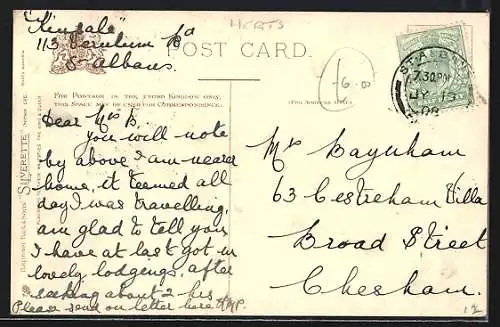 HERTS
"Kinsale"
113 Bernhim Rd
St Albans
POST CARD.
FOR POSTAGE IN THE UNITED KINGDOM ONLY,
THIS SPACE MAY BE USED FOR CORRESPONDENCE.
(FOR ADDRESS ONLY.)
"SILVERETTE"
ST ALBANS
7.30PM
JY 15
Dear Mrs B.
You will note
by above I am nearer
home, it teemed all
day I was travelling,
am glad to tell you
I have at last got in
lovely lodgengs, after
seeking about 2 hrs
Please send on letter here
Mrs Baynham
63 Cestreham Villa
Broad Street
Chesham.
12